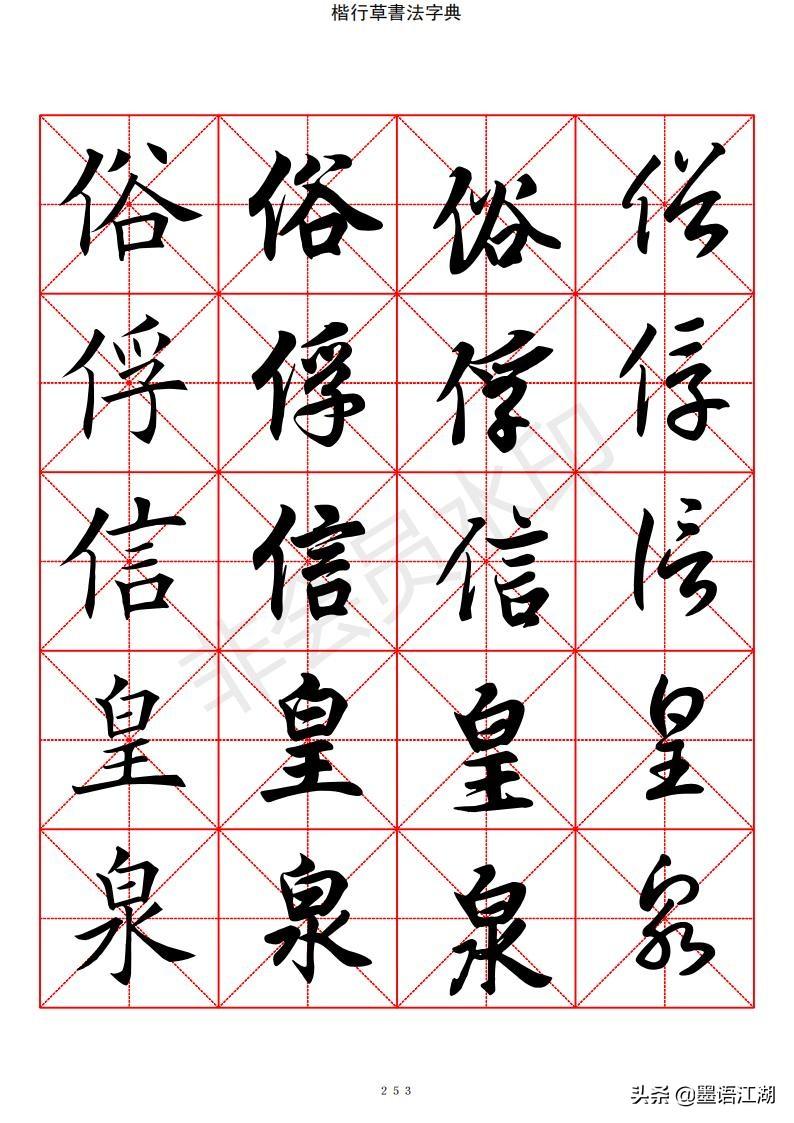 楷行草書法字典
俗俗俗俗
俘俘俘俘
信信信信
皇皇皇皇
泉泉泉泉
非会员水印
253
头条 @墨语江湖